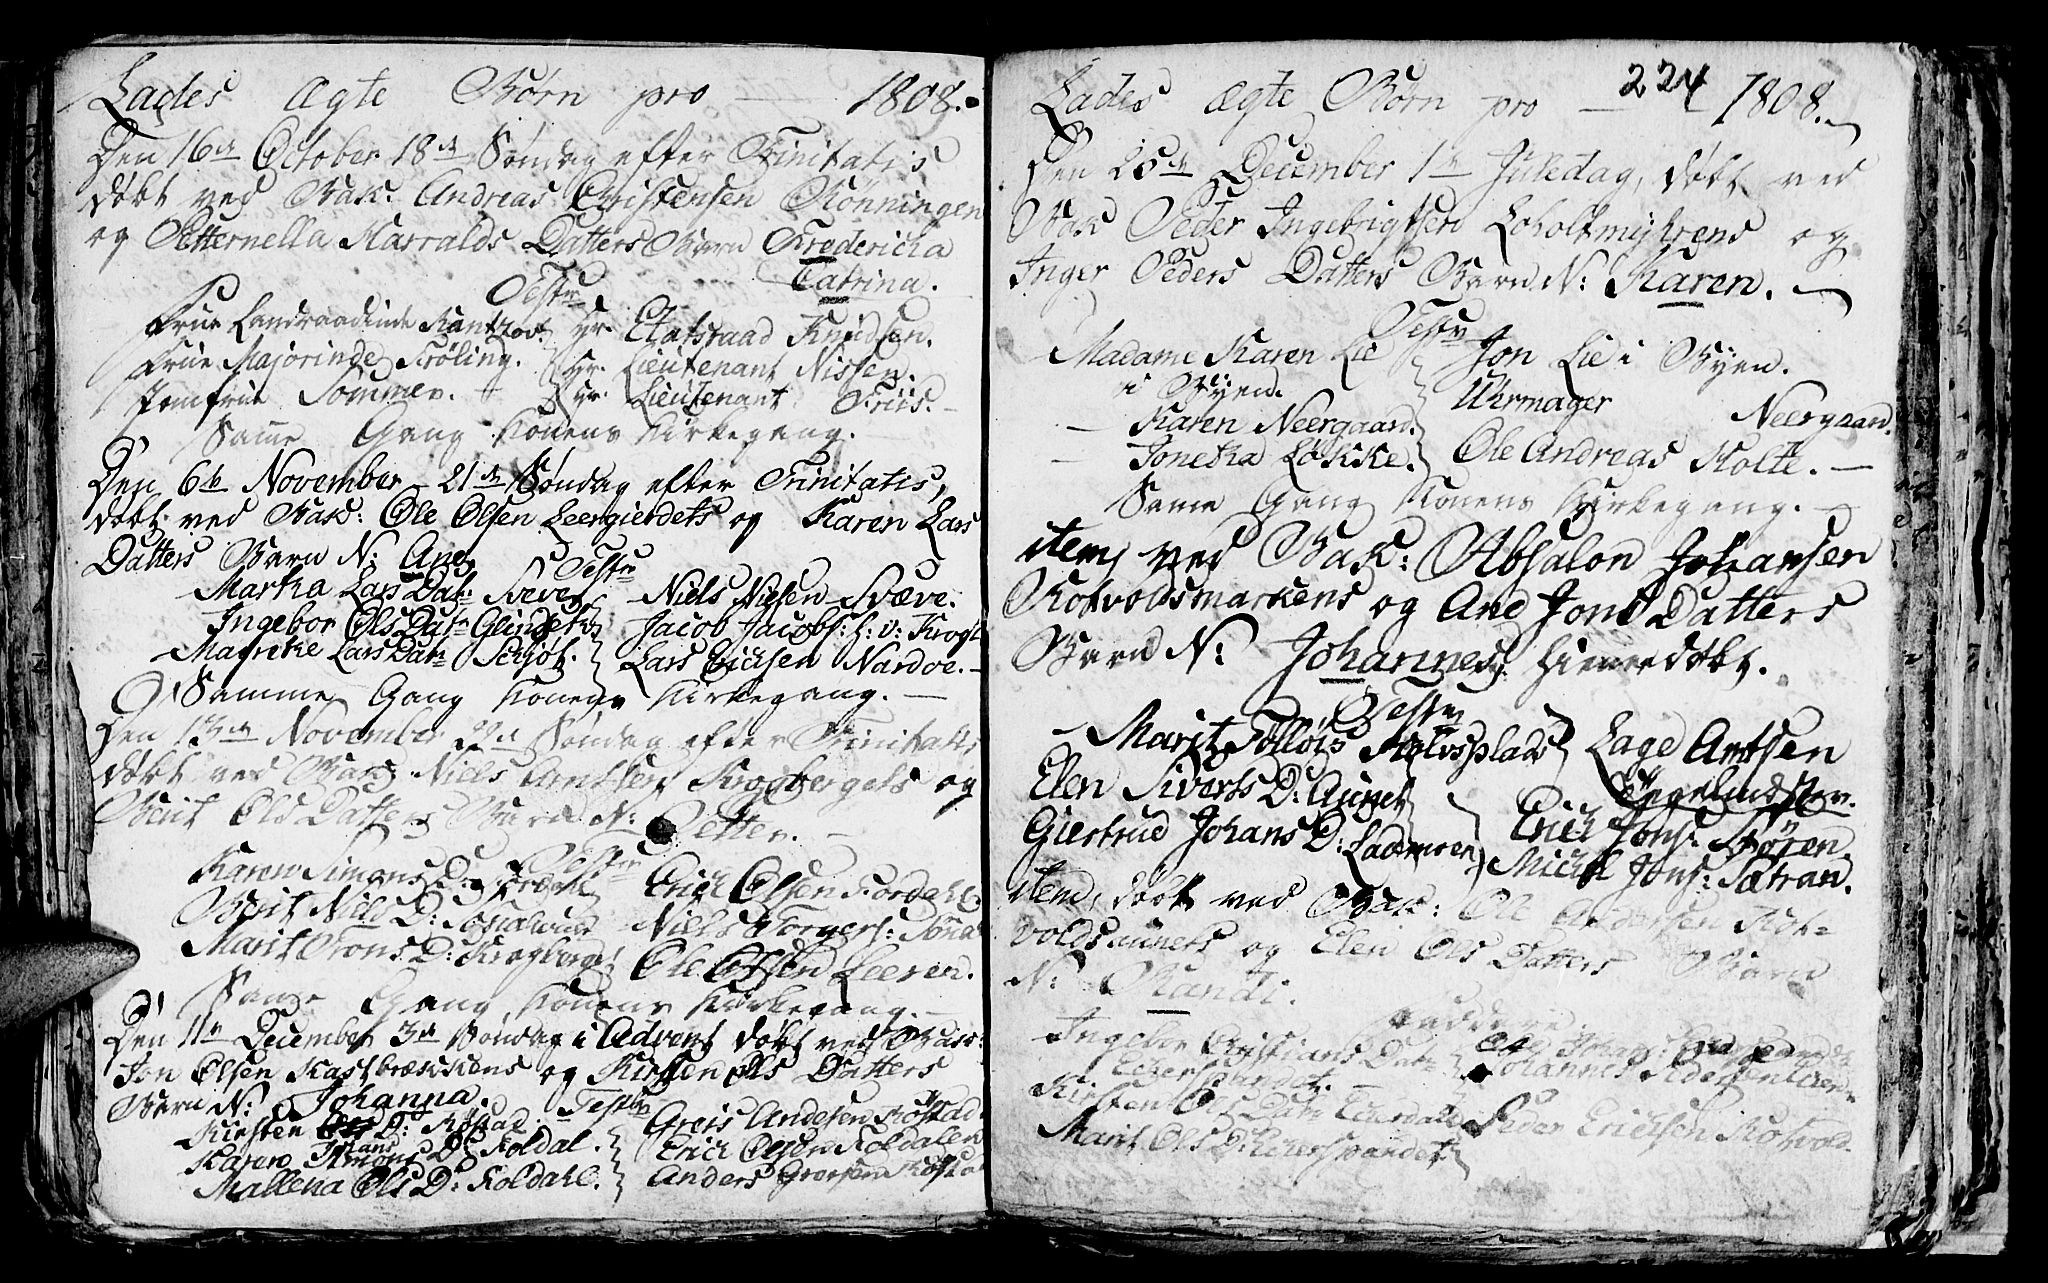 Lades ægte Børn pro — 1808.
Den 16de October 18de Søndag efter Trinitatis
døbt ved Bak: Andreas Christensen Rønningen
og Petternella Harralds Datters Barn Fredericka
Catrina.
Test
Frue Landraadinde Rantzov. Hr. Etatsraad Knudsen.
Frue Majorinde Frøling. Hr. Lieutenant Nissen.
Jomfrue Sommer. Hr. Lieutenant Friis.
Samme Gang Konens Kirkegang.
Den 6te November 21de Søndag efter Trinitatis,
døbt ved Bak: Ole Olsen Leergierdets og Karen Lars
Datters Barn N: Ane.
Test
Martha Lars Dat: Sveve Niels Nilsen Svæve.
Ingebor Ols Dat Jacob Jacobs: h: v: Krog
Marithe Lars Dat Schjøt. Lars Erichsen Nardoe.
Samme Gang Konens Kirkegang.
Den 13de November 22de Søndag efter Trinitatis
døbt ved Bak: Niels Arntsen Krogbergets og
Berit Ols Datters Barn N: Petter.
Test
Karen Simons D: Fordahl Erich Olsen Fordahl.
Berit Niels D: Niels Torgers:
Marit Trons D: Krogberget Ole Olsen Leeren.
Samme Gang Konens Kirkegang.
Den 11te December 3de Søndag i Advent døbt ved Bak:
Jon Olsen Kastbrækkens og Kirsten Ols Datters
Barn N: Johanna.
Test
Kirsten D: Røstad. Greis Andersen Røstad
Karen Hans D: Koldal. Erich Olsen Koldalen
Mallena Ols D: Koldahl. Anders Gresen Røstad
224
Lades ægte Børn pro — 1808.
Den 25de December 1ste Juledag, døbt ved
Bak Peder Ingebrigtsen Loholtmyhrens og
Inger Peders Datters Barn N: Karen.
Test
Madame Karen Lie Jon Lie i Byen.
i Byen. Uhrmager
Karen Neergaard. Neergaard.
Jonetha Løkke. Ole Andreas Holte.
Samme Gang Konens Kirkegang.
item, ved Bak: Absalon Johansen
Rotvoldsmarkens og Ane Jons Datters
Barn N: Johannes, hiemedøbt.
Test
Marit Tolløfs Rotvsplads Lage Arntsen
Elen Siverts D: Aunet Engelmdsøren.
Giertrud Johans D: Lademoen Erich Jons: Søren.
Michel Jons: Sætran.
item, døbt ved Bak: Ole Andersen Rot-
voldsaunets og Elen Ols Datters Barn
N: Randi.
Faddere.
Ingebor Christians Dat: Ole Johans:
Leersandet. Johannes Pedersen
Kirsten Ols Dat Leerdahl Peder Erichsen Rotvold.
Marit Ols D: